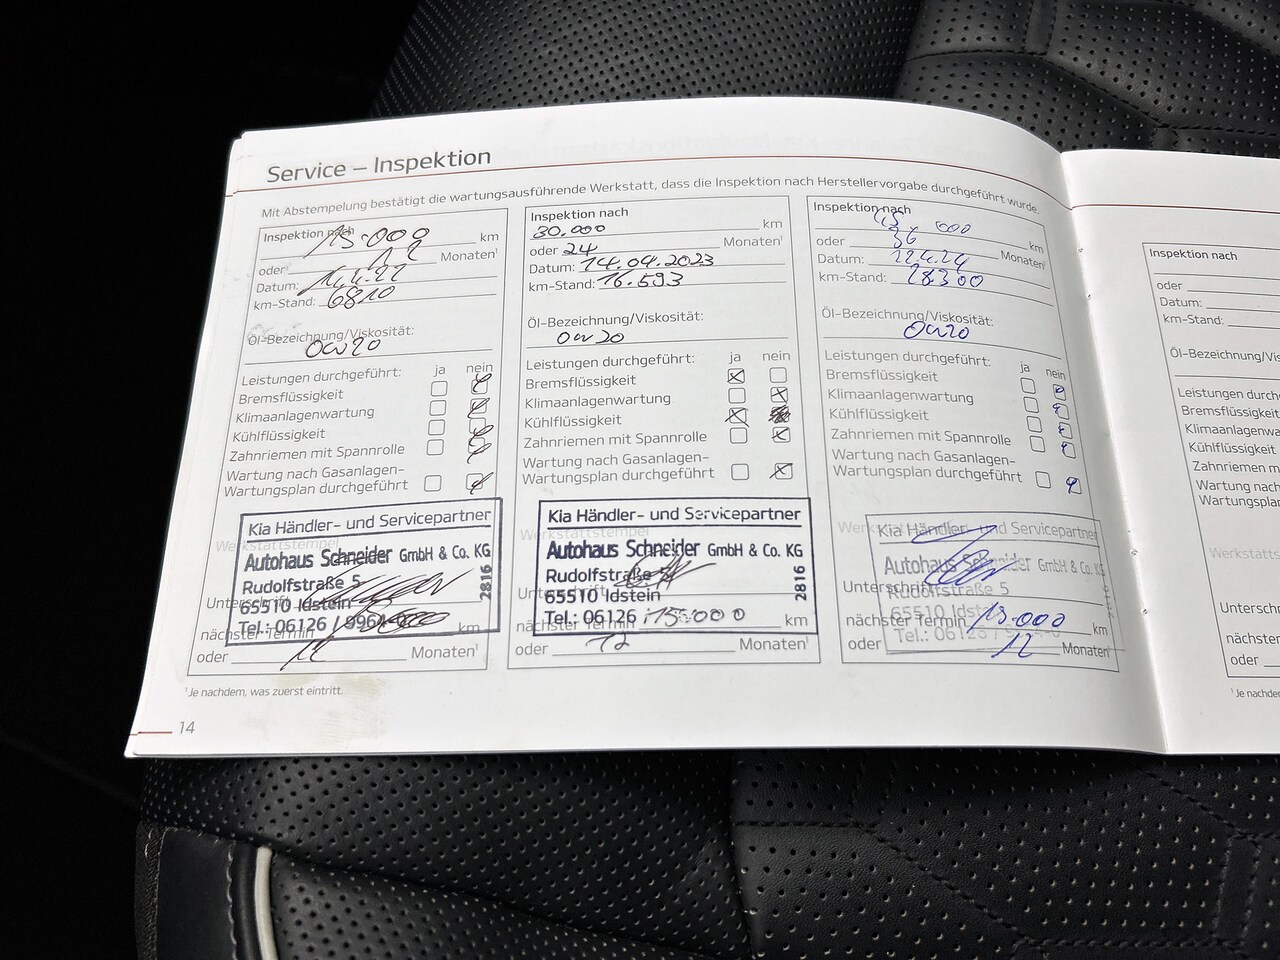 Service – Inspektion
Mit Abstempelung bestätigt die wartungsausführende Werkstatt, dass die Inspektion nach Herstellervorgabe durchgeführt wurde.
Inspektion nach
15.000 km
oder¹ 12 Monaten¹
Datum:
km-Stand: 6810
Öl-Bezeichnung/Viskosität:
0w20
Leistungen durchgeführt: ja nein
Bremsflüssigkeit
Klimaanlagenwartung
Kühlflüssigkeit
Zahnriemen mit Spannrolle
Wartung nach Gasanlagen-
Wartungsplan durchgeführt
Werkstattstempel
Kia Händler- und Servicepartner
Autohaus Schneider GmbH & Co. KG
Rudolfstraße 5
65510 Idstein
Tel.: 06126
2816
Unterschrift
nächster Termin km
oder 12 Monaten¹
Inspektion nach
30.000 km
oder 24 Monaten¹
Datum: 14.04.2023
km-Stand: 16.593
Öl-Bezeichnung/Viskosität:
0w20
Leistungen durchgeführt: ja nein
Bremsflüssigkeit
Klimaanlagenwartung
Kühlflüssigkeit
Zahnriemen mit Spannrolle
Wartung nach Gasanlagen-
Wartungsplan durchgeführt
Werkstattstempel
Kia Händler- und Servicepartner
Autohaus Schneider GmbH & Co. KG
Rudolfstraße 5
65510 Idstein
Tel.: 06126
2816
Unterschrift
nächster Termin 15.000 km
oder 12 Monaten¹
Inspektion nach
000 km
oder 36 Monaten¹
Datum:
km-Stand: 28300
Öl-Bezeichnung/Viskosität:
0w20
Leistungen durchgeführt: ja nein
Bremsflüssigkeit
Klimaanlagenwartung
Kühlflüssigkeit
Zahnriemen mit Spannrolle
Wartung nach Gasanlagen-
Wartungsplan durchgeführt
Kia Händler- und Servicepartner
Autohaus Schneider GmbH & Co. KG
Rudolfstraße 5
65510 Idstein
Tel.:
Unterschrift
nächster Termin 15.000 km
oder 12 Monaten¹
¹Je nachdem, was zuerst eintritt.
14
Inspektion nach
oder
Datum:
km-Stand:
Öl-Bezeichnung/Vis
Leistungen durchg
Bremsflüssigkeit
Klimaanlagenwar
Kühlflüssigkeit
Zahnriemen m
Wartung nach
Wartungsplan
Werkstatts
Unterschr
nächste
oder
¹ Je nachde